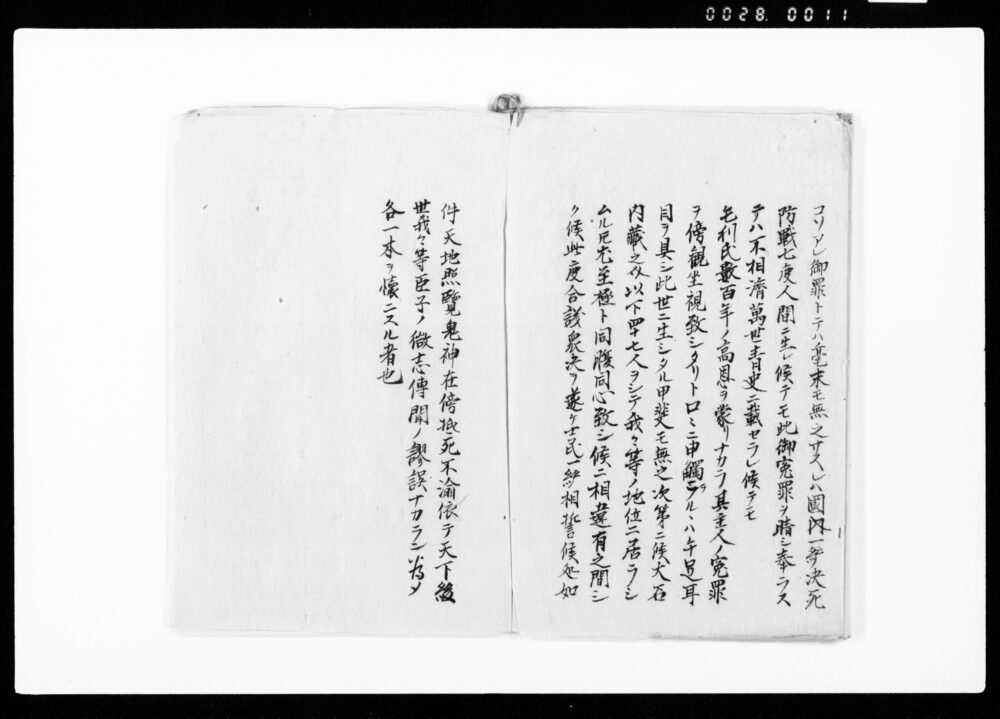 0028. 0011
コソアレ御罪トテハ毫末モ無之サスレハ國内一等決死
防戰七度人間ニ生レ候テモ此御寃罪ヲ晴シ奉ラス
テハ不相濟萬世青史ニ載セラレ候テモ
毛利氏數百年ノ高恩ヲ蒙リナカラ其主人ノ寃罪
ヲ傍観坐視致シタリト口ミニ申觸ラルヽハ午足耳
目ヲ具シ此世ニ生シタル甲斐モ無之次第ニ候大石
内藏之介以下四十七人ヲシテ我々等ノ地位ニ居ラシ
ムル尼尤至極ト同腹同心致シ候ニ相違有之間シ
ク候此度合議衆決ヲ遂ケ士民一統相誓候処如
件天地照覽鬼神在傍抵死不渝依テ天下後
世我々等臣子ノ微志傳聞ノ謬誤ナカラン為メ
各一本ヲ懷ニスル者也